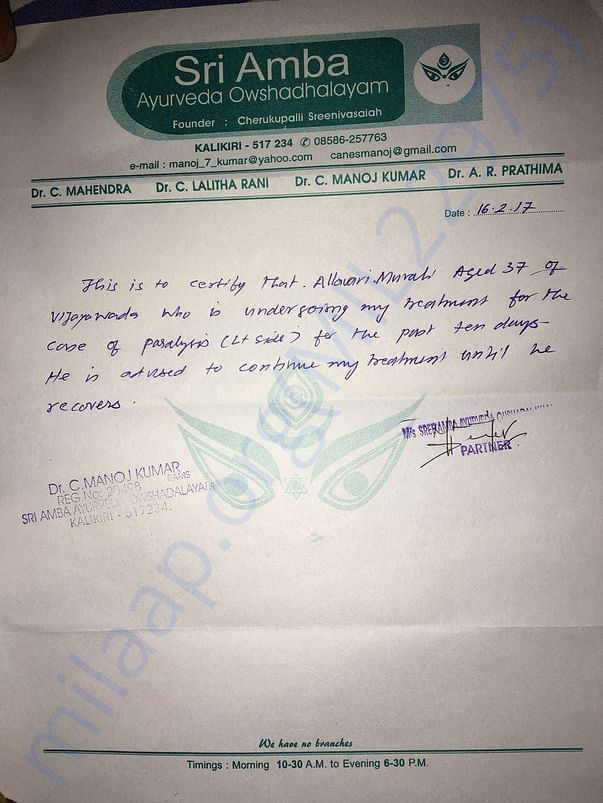 Sri Amba
Ayurveda Owshadhalayam
Founder : Cherukupalli Sreenivasaiah
KALIKIRI - 517 234 ✆ 08586-257763
e-mail : manoj_7_kumar@yahoo.com canesmanoj@gmail.com
Dr. C. MAHENDRA Dr. C. LALITHA RANI Dr. C. MANOJ KUMAR Dr. A. R. PRATHIMA
Date : 16.2.17
This is to certify that. Allavari.Murali Aged 37 of
Vijayawada who is undergoing my treatment for the
case of paralysis (Lt side) for the past ten days-
He is advised to continue my treatment until he
recovers.
M/s SREE AMBA AYURVEDA OWSHADALAYAM
PARTNER
Dr. C.MANOJ KUMAR
BAMS
REG.No: 20498
SRI AMBA AYURVEDA OWSHADALAYAM
KALIKIRI - 517234.
We have no branches
Timings : Morning 10-30 A.M. to Evening 6-30 P.M.
milaap.org(MIL22975)